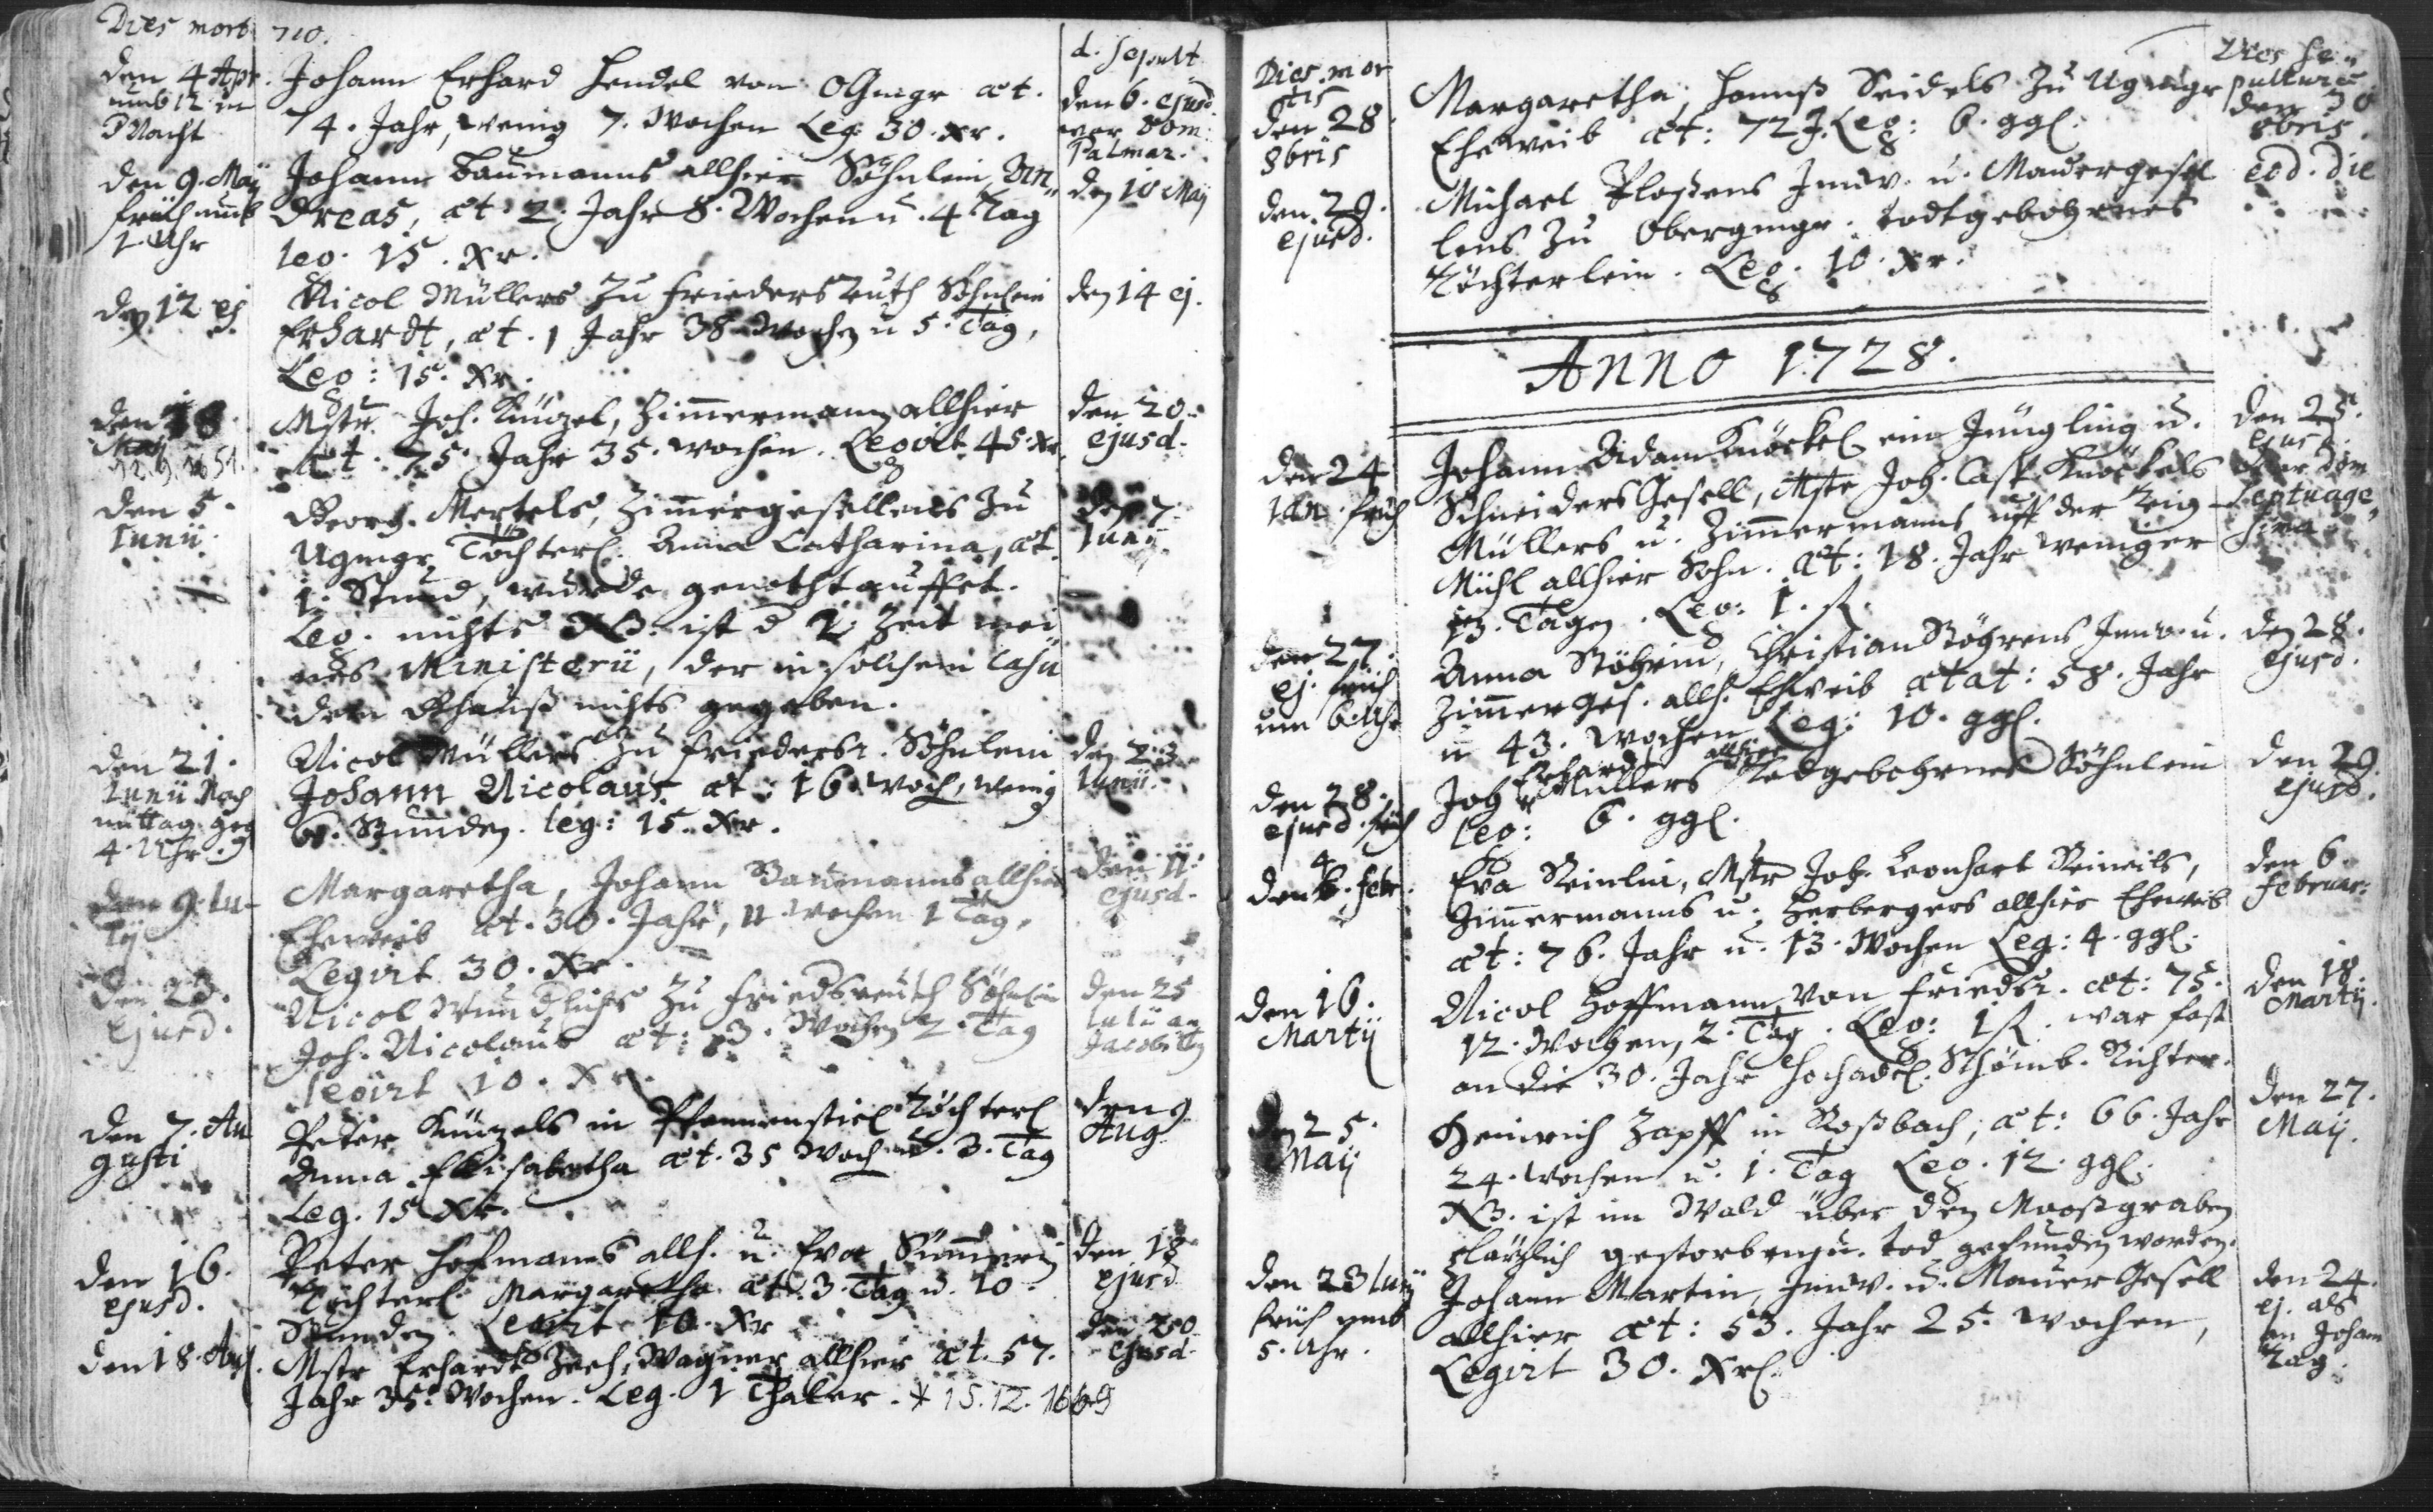 Dies mort. 710.
d. sepult
den 4 Apr.
umb 12 in
Nacht
Johann Erhard Hendel von OGmgr æt.
74. Jahr, wenig 7. Wochen Leg. 30. xr.
den 6. ejusd.
war Dom:
Palmar.
den 9. Maÿ
früh umb
1. Uhr
Johann Baumanns allhier Söhnlein, An„
dreas, æt. 2. Jahr 8. Wochen u. 4 Tag
leg. 15. Xr.
den 10 Maÿ
den 12 ej
Nicol Müllers zu Friedersreuth Söhnlein
Erhardt, æt. 1 Jahr 38 Wochen u 5. Tag,
Leg: 15. Xr.
den 14 ej.
den 18.
Maÿ
Mstr. Joh. Künzel, Zimmermann allhier
æt. 75. Jahr 35. wochen. Legirt 45. Xr.
den 20.
ejusd.
den 5.
Iunii.
Georg Mertels, Zimmergesellens zu
Ugmgr Töchterl. Anna Catharina, æt.
1. Stund, wurde genothtauffet.
Leg. nichts NB. ist d 1. Zeit mei
nes Ministerii, der in solchem casu
dem Gotteshauß nichts gegeben.
den 7.
Iunii
den 21.
Iunii Nach
mittag geg
4. Uhr.
Nicol Müllers zu Friedersr. Söhnlein
Johann Nicolaus æt: 16. woch, wenig
6. Stunden. leg: 15. Xr.
den 23
Iunii.
den 9. Iu-
lij
Margaretha, Johann Baumanns allhier
Eheweib æt. 30. Jahr, 11 wochen 1 Tag,
Legirt 30. Xr.
den 11.
ejusd.
den 23.
ejusd.
Nicol Wundlichs zu Friedersreuth Söhnlein
Joh. Nicolaus æt: 3. Wochen 2. Tag
legirt 10. Xr.
den 25
Iulii an
Jacobi Tag
den 7. Au
gusti
Peter Künzels in Pfannenstiel Töchterl
Anna Elisabetha æt. 35 Woch u. 3. Tag
Leg. 15 Xr.
den 9
Aug.
den 16.
ejusd.
Peter Hofmanns allh. u. Eva
Töchterl Margaretha æt. 3. Tag u. 10.
Stunden Legirt 10. Xr
den 18
ejusd
den 18. Aug.
Mstr Erhardt Zeeh, Wagner allhier æt. 57.
Jahr 35. Wochen. Leg. 1 Thaler. * 15.12.1669
den 20
ejusd.
Dies mor
tis
Dies se„
pulturæ
den 28
8bris
Margaretha, Hannß Seidels zu Ugmgr
Eheweib æt: 72 J. Leg: 6. ggl.
den 30
8bris.
den 29.
ejusd.
Michael Ploßens Inw. u. Maurergesel
lens zu Obergmgr. todtgebohrnes
Töchterlein. Leg. 10. Xr.
eod. die
ANNO 1728.
den 24
Ian. früh
Johann Adam Knöckel ein Jüngling u.
Schneiders Gesell, Mstr Joh. Casp. Knöckels
Müllers u. Zimmermanns uff der
Mühl allhier Sohn. æt: 18. Jahr weniger
13. Tagen. Leg: 1. fl.
den 25.
ejusd.
war Dom
Septuage„
sima
den 27.
ej. früh
um 6. Uhr
Anna Röhrin, Christian Röhrens Inw. u.
Zimmerges. allh. Eheweib ætat: 58. Jahr
u 43. wochen Leg: 10. ggl.
den 28.
ejusd.
den 28.
ejusd. früh
Joh Erhardt Müllers allhier Todgebohrnes Söhnlein
Leg: 6. ggl.
den 29.
ejusd.
den 4. Febr.
Eva Steinlin, Mstr Joh. Leonhart Steineils,
Zimmermanns u. Herbergers allhier Eheweib
æt: 76. Jahr u. 13. Wochen Leg: 4. ggl.
den 6.
Februar:
den 16.
Martij
Nicol Hoffmann von Friedsr. æt: 75.
12. Wochen, 2. Tag. Leg: 1 fl. war fast
an die 30. Jahr Hochadel. Schömb. Richter.
den 18.
Martij.
den 25.
Maij
Heinrich Zapff in Roßbach, æt: 66. Jahr
24. Wochen u. 1. Tag Leg. 12. ggl.
NB. ist im Wald über den Mooßgraben
gestorben u. tod gefunden worden.
den 27.
Maij.
den 23 Iunij
früh umb
5. Uhr.
Johann Martin, Inw. u. Maurer Gesell
allhier æt: 53. Jahr 25. Wochen,
Legirt 30. Xrl.
den 24.
ej. als
am Johann
Tag.